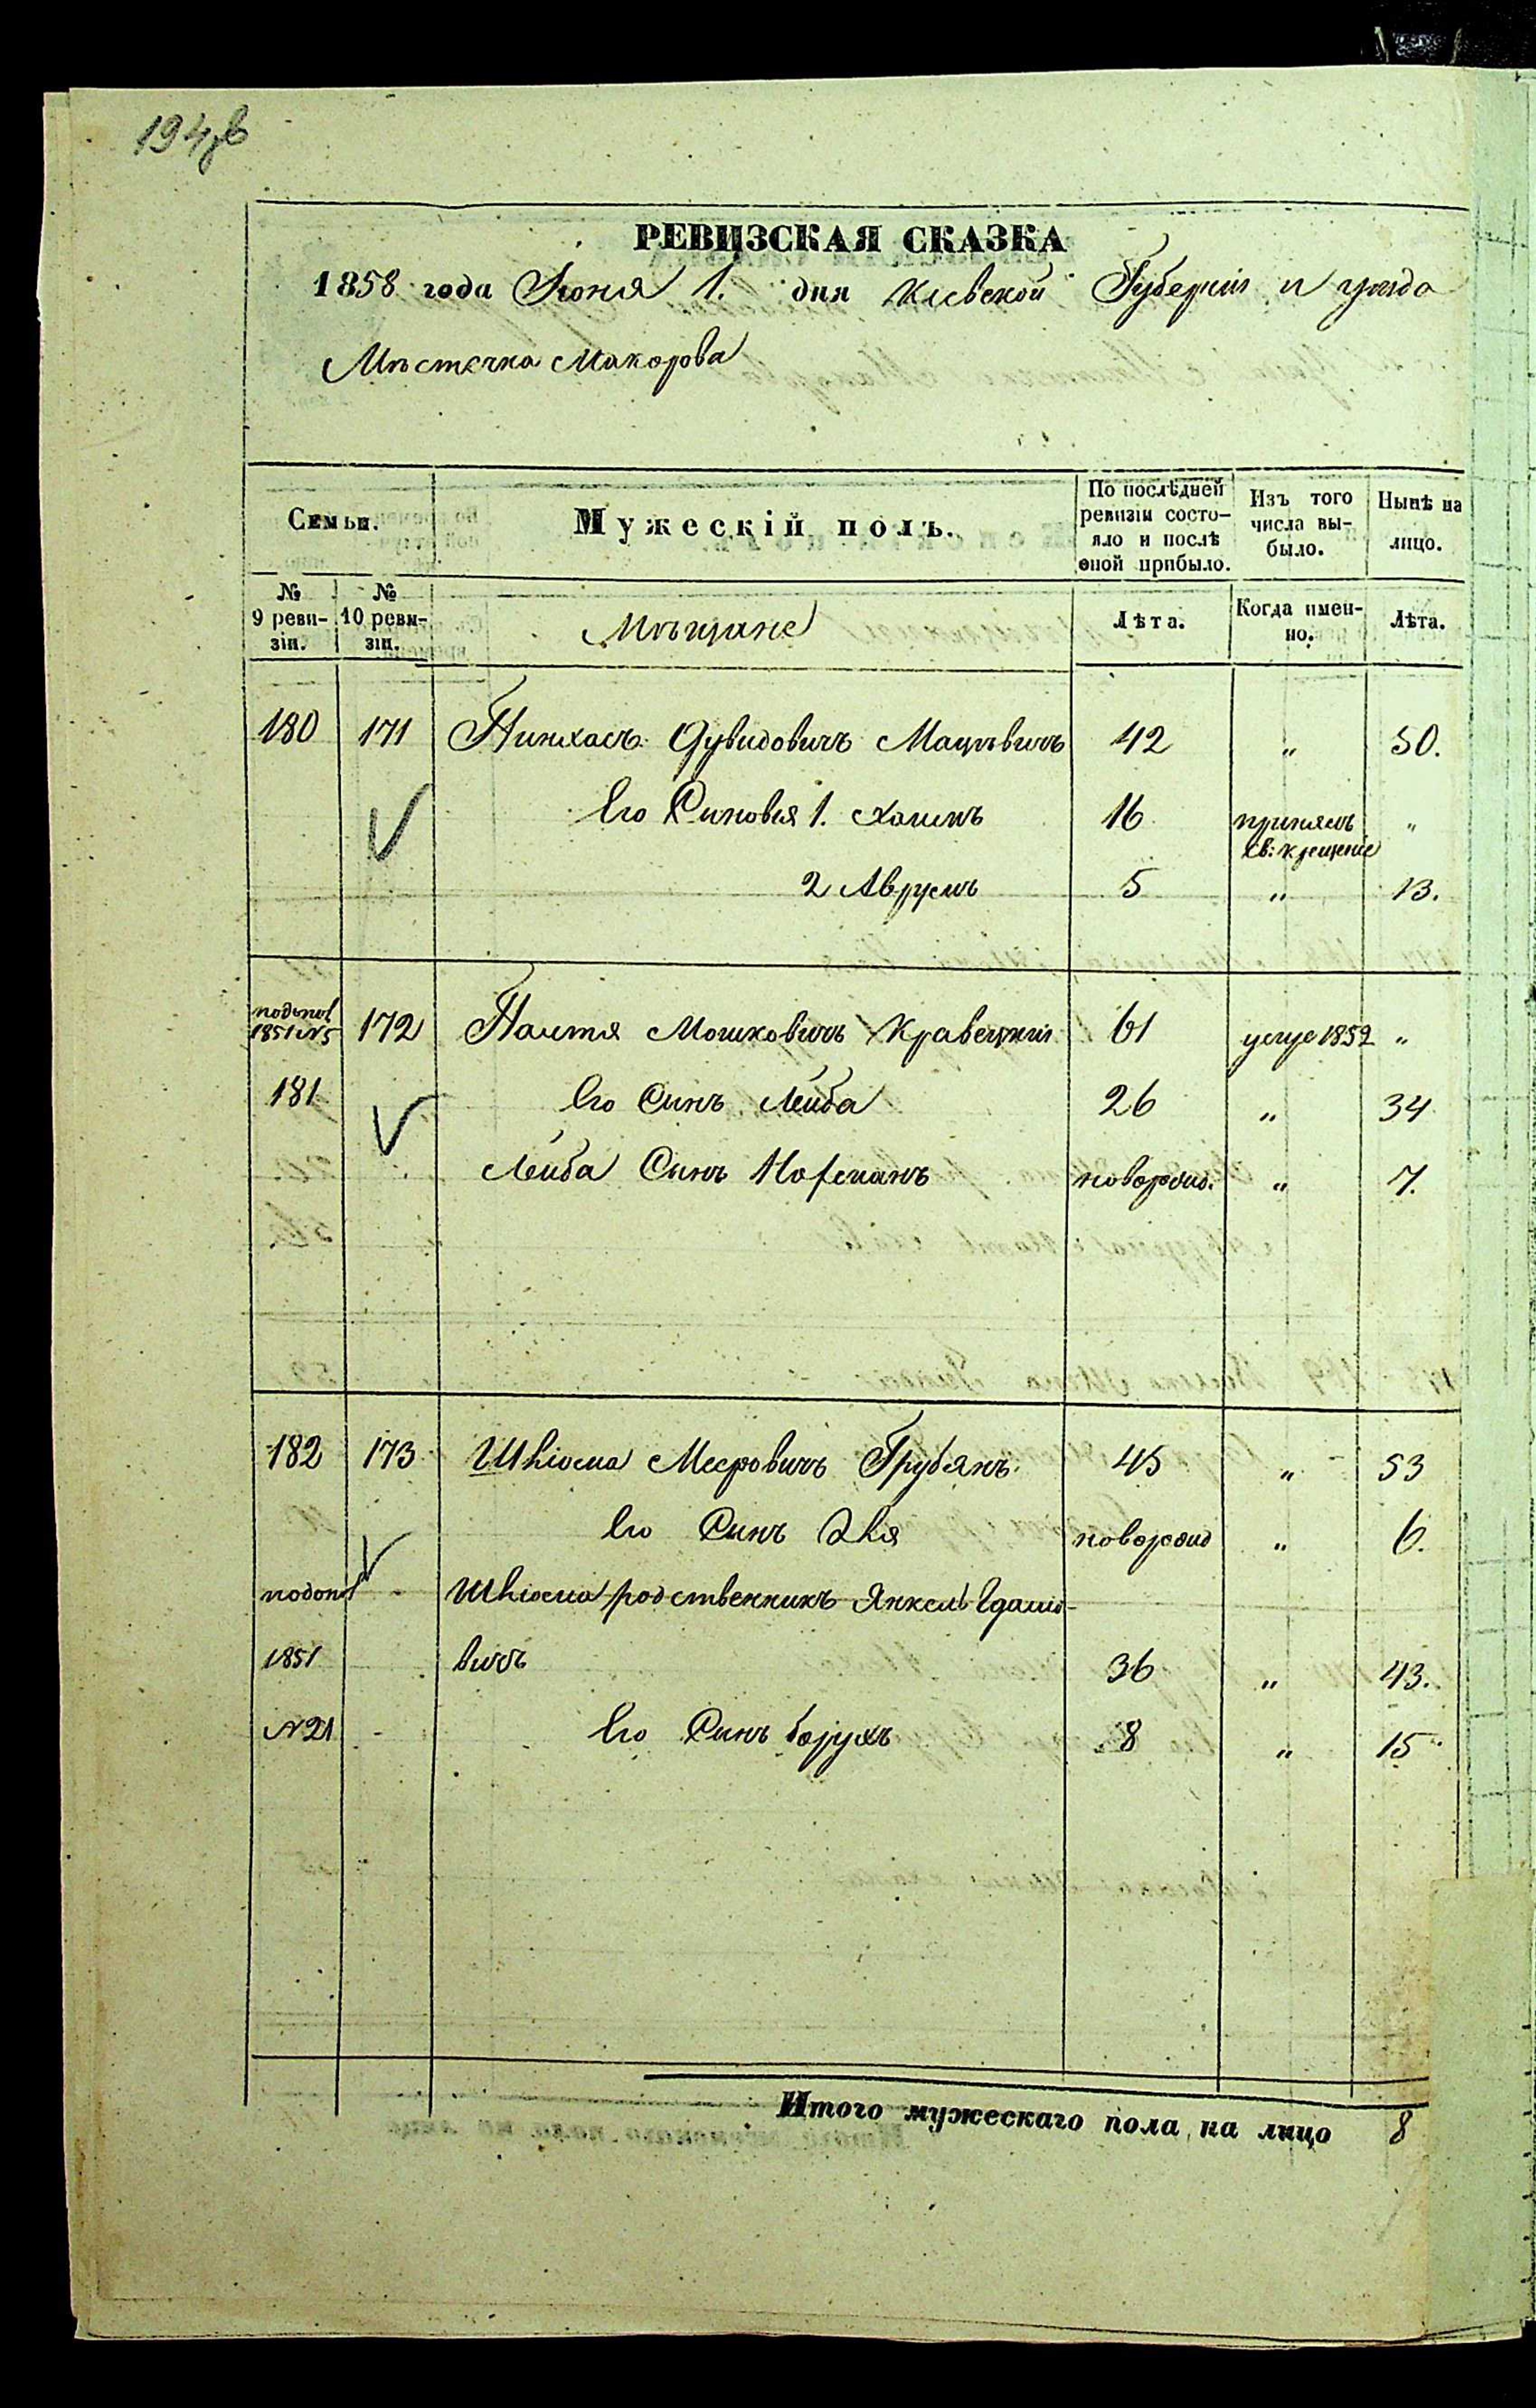 194 об
РЕВИЗСКАЯ СКАЗКА
1858 года Июня 1. дня Кіевской Губерніи и уѣзда
Мѣстечка Макарова
Семьи.
Мужескій полъ.
По послѣдней ревизіи состояло и послѣ оной прибыло.
Изъ того числа выбыло.
Нынѣ на лицо.
№ 9 ревизіи.
№ 10 ревизіи.
Мѣщане
Лѣта.
Когда именно.
Лѣта.
180 171 Пинхасъ Дувидовичъ 42 " 50.
Его Синовья 1. Хаимъ 16 принялъ св: крещеніе "
2 Аврумъ 5 " 13.
1851 N5 172 Мошковичъ Кравецкій 61 умре 1852 "
181 Его Синъ Лейба 26 " 34
Лейба Синъ новорожд. " 7.
182 173 Шліома Мееровичъ Грубянъ 45 " 53
Его Синъ новорожд " 6.
Шліома родственникъ Янкель
1851 вичъ 36 " 43.
N 21 - Его Синъ Борухъ 8 " 15
Итого мужескаго пола на лицо 8